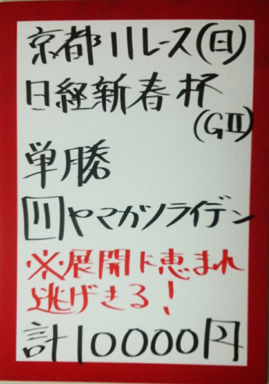 京都11レース(日)
日経新春杯
(GⅡ)
単勝
11ヤマカツライデン
※展開に恵まれ
逃げきる!
計10000円